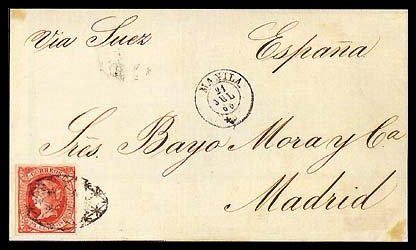 Via Suez
España
MANILA
21
JUL
Srēs. Bayo Mora y Ca
CORREOS
Madrid